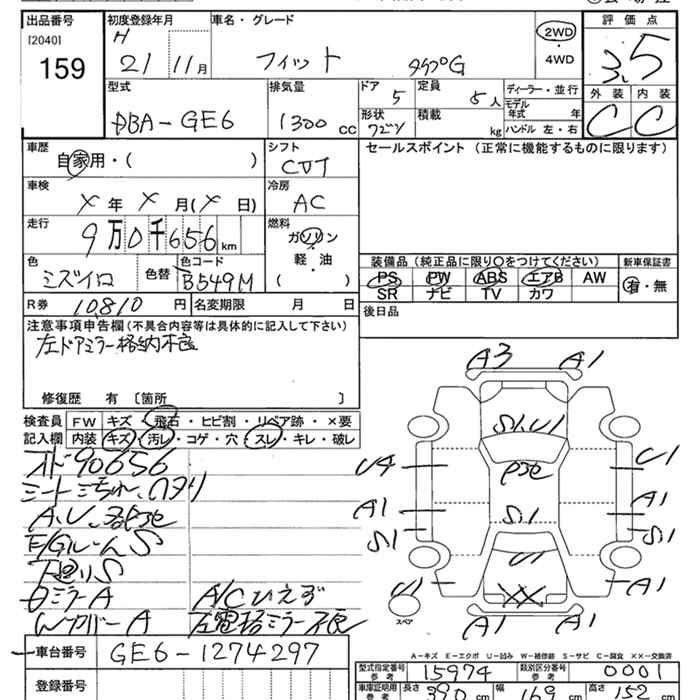 出品番号
[2040]
159
初度登録年月
H
21 11月
車名・グレード
フィット
タイプG
2WD
・
4WD
評価点
3.5
外装 内装
C C
型式
DBA-GE6
排気量
1300 cc
ドア
5
定員
5人
形状
積載
kg
ディーラー・並行
モデル年式 年
ハンドル 左・右
車歴
自家用・( )
シフト
CVT
セールスポイント (正常に機能するものに限ります)
車検
X年 X月(X日)
冷房
AC
走行
9万0千656km
燃料
ガソリン
・
軽・油
( )
色
ミズイロ
色替
色コード
B549M
装備品 (純正品に限り〇をつけてください)
PS PW ABS エアB AW
SR ナビ TV カワ
新車保証書
有・無
R券 10,810円
名変期限 月 日
後日品
注意事項申告欄 (不具合内容等は具体的に記入して下さい)
左ドアミラー格納不良
修復歴 有 〔箇所 〕
検査員
記入欄
FW キズ・飛石・ヒビ割・リペア跡・×要
内装 キズ・汚レ・コゲ・穴・スレ・キレ・破レ
オド90656
A.U.
E/GルームS
下廻りS
A/Cひえず
WカバーA
A3 A1
S1.U1
U4
U1
A1
S1
A1
A1
S1
S1
U1
XX
U1
スペア
A1
A1 A1
A-キズ E-エクボ U-凹み W-補修跡 S-サビ C-腐食 XX-交換済
車台番号
GE6-1274297
登録番号
型式指定番号
参考
15974
類別区分番号
参考
0001
車庫証明用
参考
長さ 390 cm
幅 169 cm
高さ 152 cm